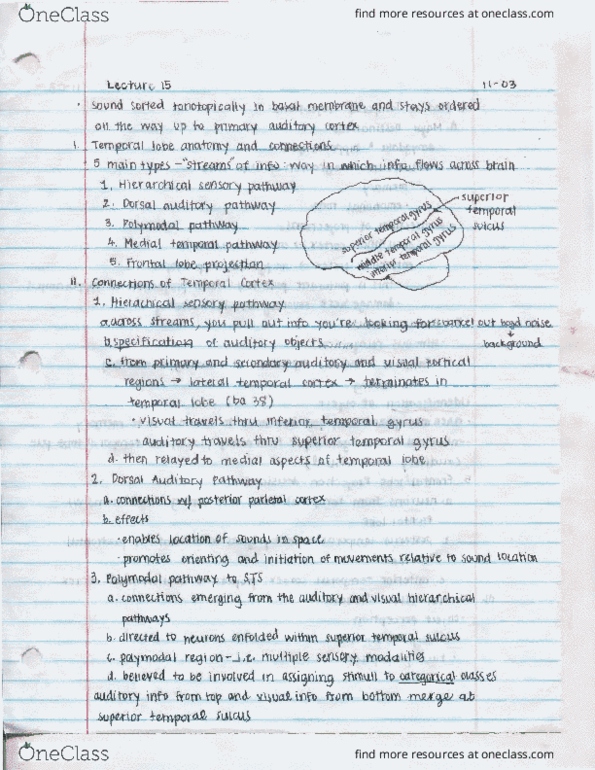 OneClass
find more resources at oneclass.com
Lecture 15
11-03
· sound sorted tonotopically in basal membrane and stays ordered
on the way up to primary auditory cortex
I. Temporal lobe anatomy and connections
5 main types - "streams" of info: way in which info flows across brain
1. Hierarchical sensory pathway
2. Dorsal auditory pathway
3. Polymodal pathway
4. Medial temporal pathway
5. Frontal lobe projection
superior temporal gyrus
middle temporal gyrus
inferior temporal gyrus
superior
temporal
sulcus
II. Connections of Temporal Cortex
1. Hierachical sensory pathway
a. across streams, you pull out info you're looking for + cancel out bgd noise
background
b. specification of auditory objects
c. from primary and secondary auditory and visual cortical
regions → lateral temporal cortex → terminates in
temporal lobe (ba 38)
· visual travels thru inferior temporal gyrus
· auditory travels thru superior temporal gyrus
d. then relayed to medial aspects of temporal lobe
2. Dorsal Auditory Pathway
a. connections w/ posterior parietal cortex
b. effects
· enables location of sounds in space
· promotes orienting and initiation of movements relative to sound location
3. Polymodal pathway to STS
a. connections emerging from the auditory and visual hierarchical
pathways
b. directed to neurons enfolded within superior temporal sulcus
c. polymodal region - i.e. multiple sensory modalities
d. believed to be involved in assigning stimuli to categorical classes
auditory info from top and visual info from bottom merge at
superior temporal sulcus
OneClass
find more resources at oneclass.com